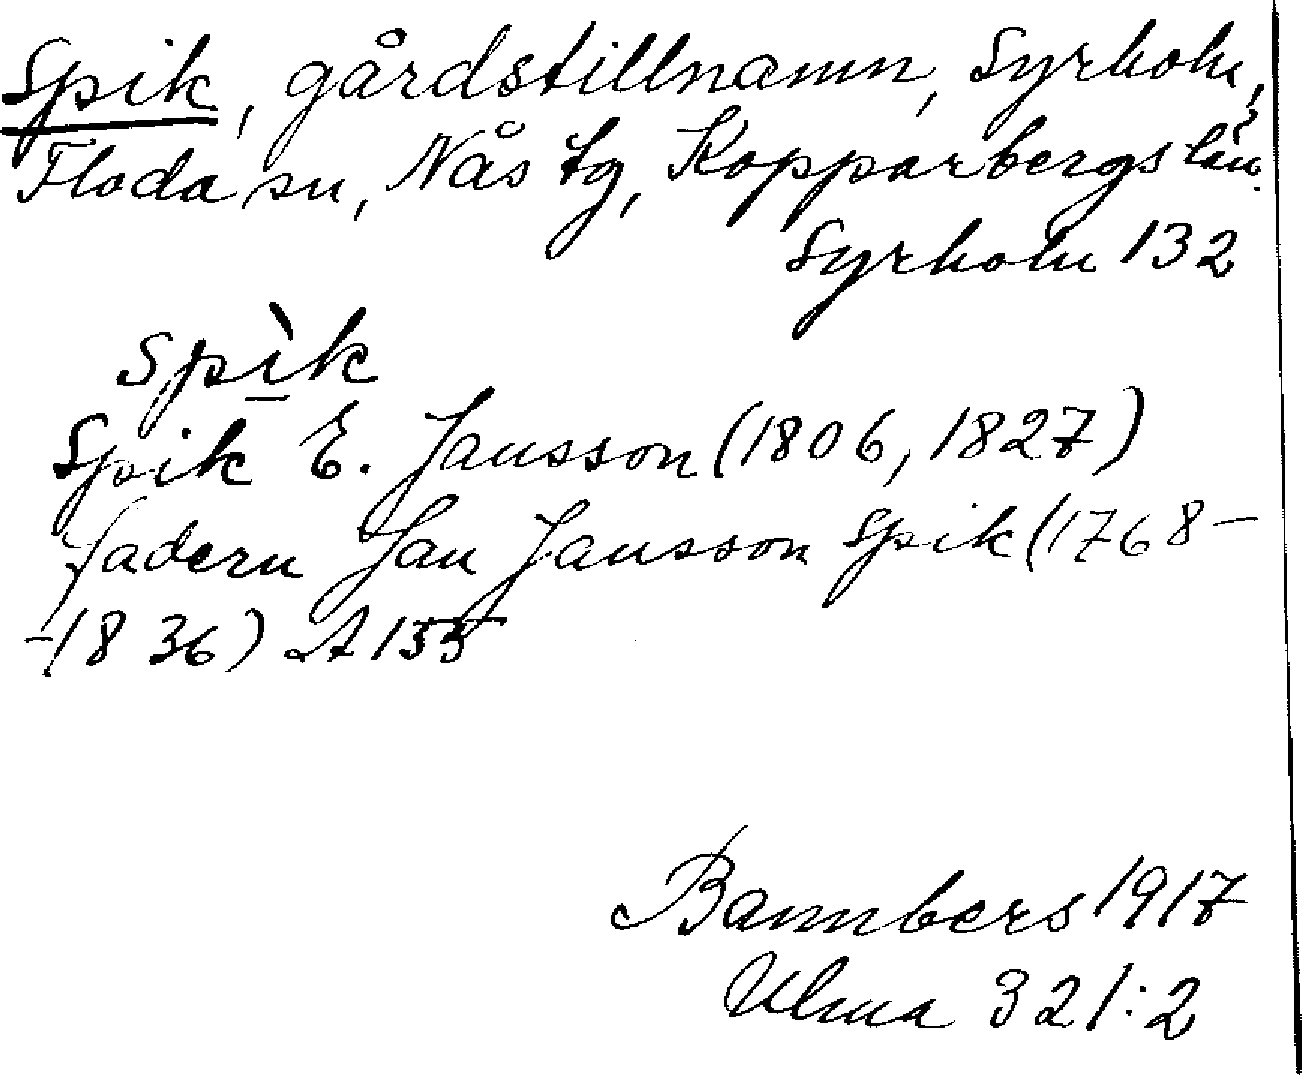 Spik, gårdstillnamn, Syrholn,
Floda sn, Nås tg, Kopparbergs län.
Syrholn 132
Spìk
Spik E. Jansson (1806, 1827)
fadern Jan Jansson Spik (1768–
–1836) A 155
Bannbers 1917
Ulma 321:2